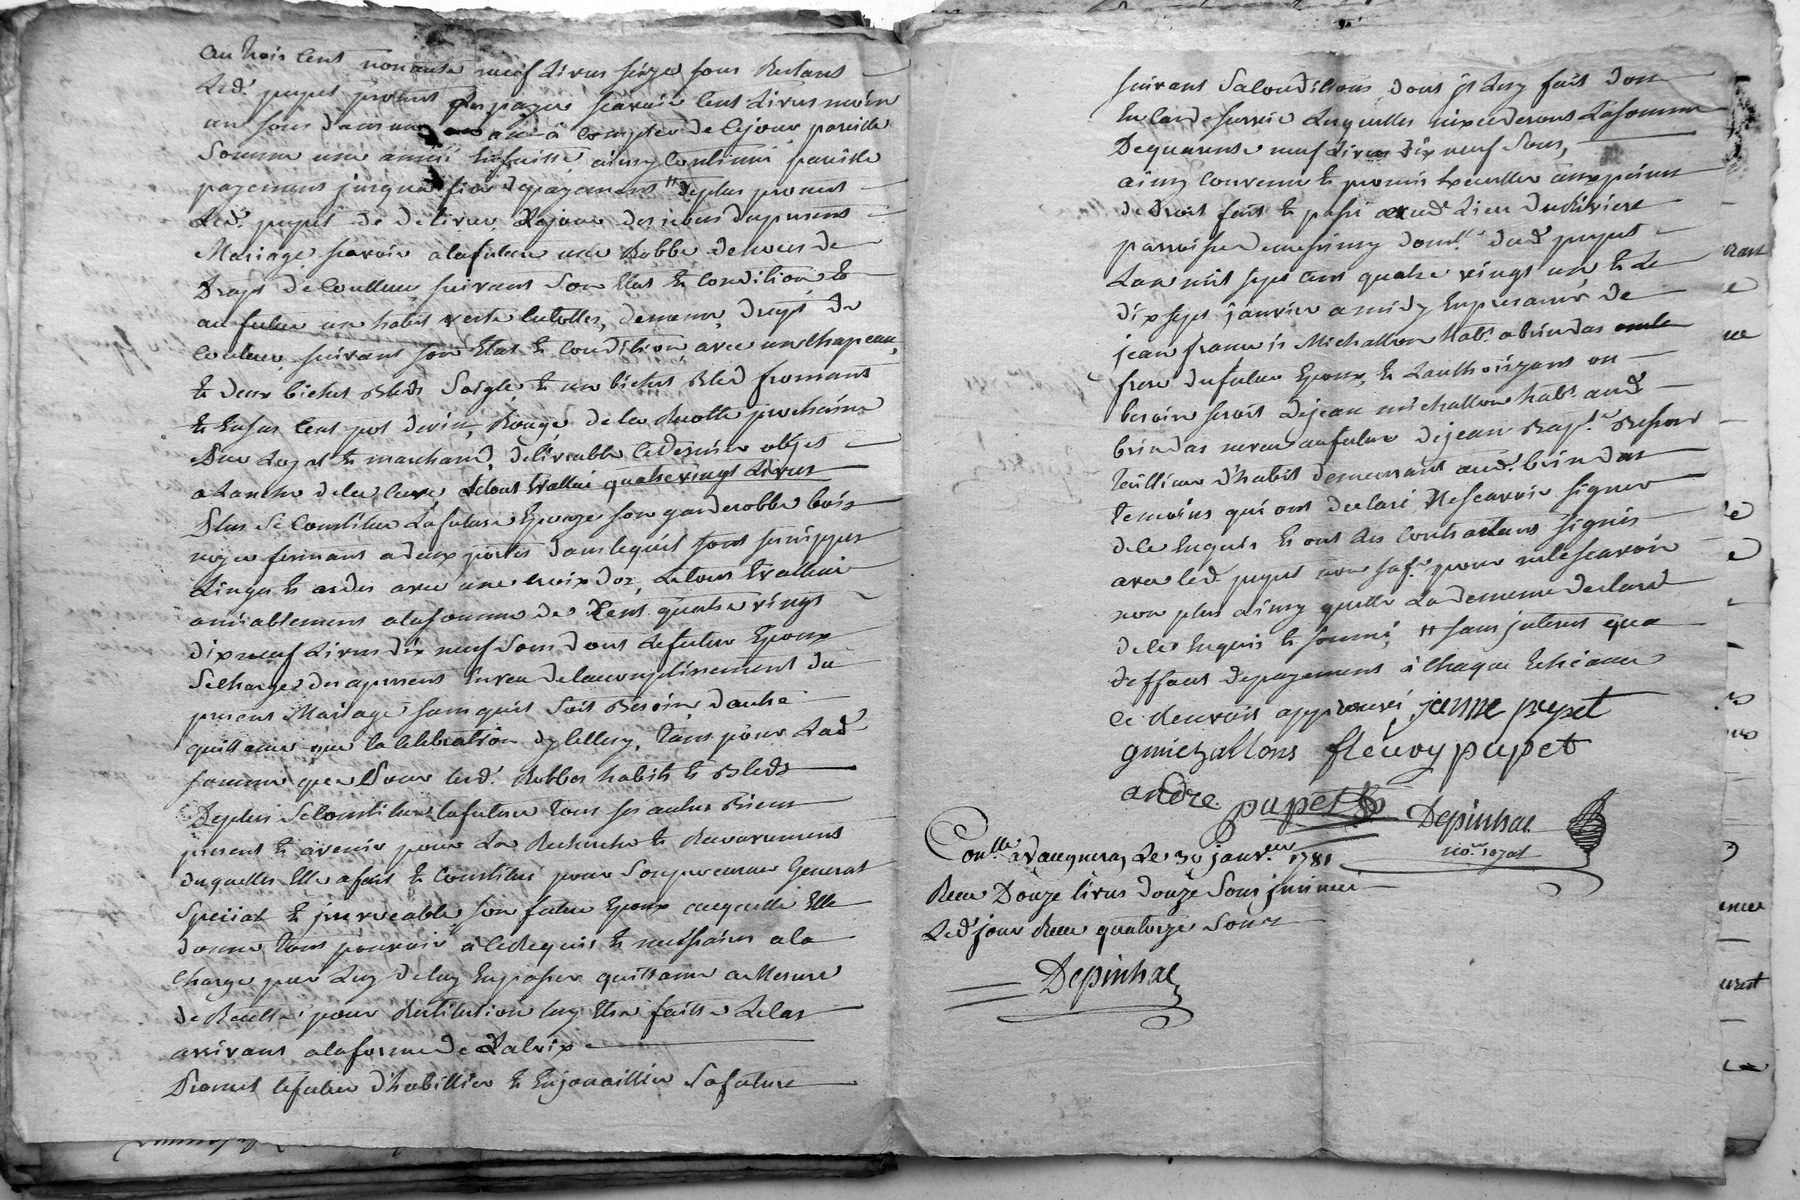 au trois cent nonante neuf Livres seize sous Restants
Led. pupet promet payer scavoir cent Livres moin
un sous dans un an à compter de cejour pareille
Somme une année Ensuitte ainsy Continuer pareille
payements jusqua fin depayement " deplus promet
Led. pupet de delivrer Lejour des nôces dupresent
Mariage scavoir alafuture une Robbe de noces de
Draps deCoulleur suivant Son Etat et Condition et
aufutur un habit veste culottes, demême draps de
Couleur suivant son Etat et Condition avec un chapeau,
et deux bichets Bled Soigle et un bichet Bled froment
et Enfin Cent pot devin Rouge de la Recolte prochaine
Bon Loyal et marchand, délivrable ledernier objet
a Lanche dela cuve, Letout Evallué quatrevingt Livres
Plus Se Constitue Lafuture Epouze son garderobbe bois
noyer fermant adeux portes dans lequel sont ses nippes
Linges et ardes avec une croix dor, Letout Evallué
amiablement alasomme de Cent quatre vingt
dixneuf Livres dix neuf Sous dont Lefutur Epoux
Secharge desapresent Enveu delaccomplissement du
present Mariage sans quil Soit Besoin dautre
quittance que la Celebration dycelluy, Tant pour Lad.
somme que Pour lesd. Robbes habits et Bleds
Deplus SeConstitue lafuture tous ses autres Biens
present et avenir pour La Recherche et Recouvrement
desquelles Elle afait et Constitué pour Sonprocureur General
Special et jrrevocable son futur Epoux auquelle Elle
donne tous pouvoir à ceRequis et necessaires ala
Charge par Luy delui Enpasser quittance a Mesure
deRecette pour Restitution luy Etre faitte Lecas
arrivant alaforme de
Promet lefutur d'habillier et Enjouaillier Safuture
suivant Sa Condition dont jl Luy fait don
En cas de survie Lesquelles nixcederont Lasomme
Dequarente neuf Livres dix neuf Sous,
ainsy Convenu et promis Executter auxpeines
de droit fait et passé aud. Lieu de
parroisse demessimy domle. dud. pupet
Lan mil sept cent quatre vingt un et Le
dixsept janvier amidy Enpresence de
jean francois Michallon habt. abrindas
frere dufutur Epoux, et Lauthorizant en
besoin seroit dejean michallon habt. aud.
brindas neveu aufutur dejean Bapt. Besson
tailleur d'habit demeurant aud. brindas
temoins qui ont declaré Nescavoir signer
dece Enquis et ont les Contractans signés
avec led. pupet pour nelescavoir
non plus ainsy quelle La dememe declaré
dece Enquis et sommé, " sans jnterest qua
deffaut depayement à chaque Echeance
ce Renvoit approuvé jenne pupet
gmichallons fleury pupet
andre pupet Depinhac
nore. royal
Conllé. à vaugneray Le 30 janvier 1781
Recu Douze livres douze Sous jnsinué
Led. jour Recu quatorze Sous
Depinhac